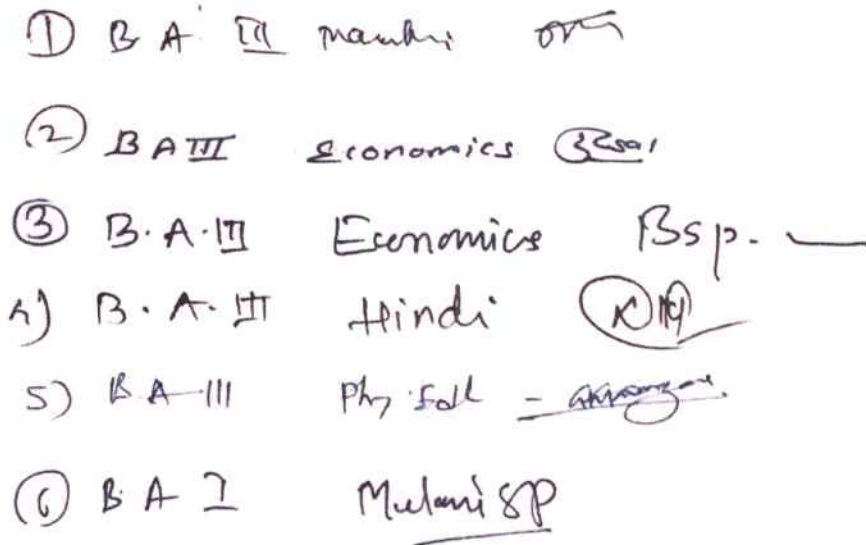 ① B A III
② B A III Economics
③ B.A.III Economics Bsp.
4) B.A.III Hindi
5) B A III
⑥ B A I Mulani SP